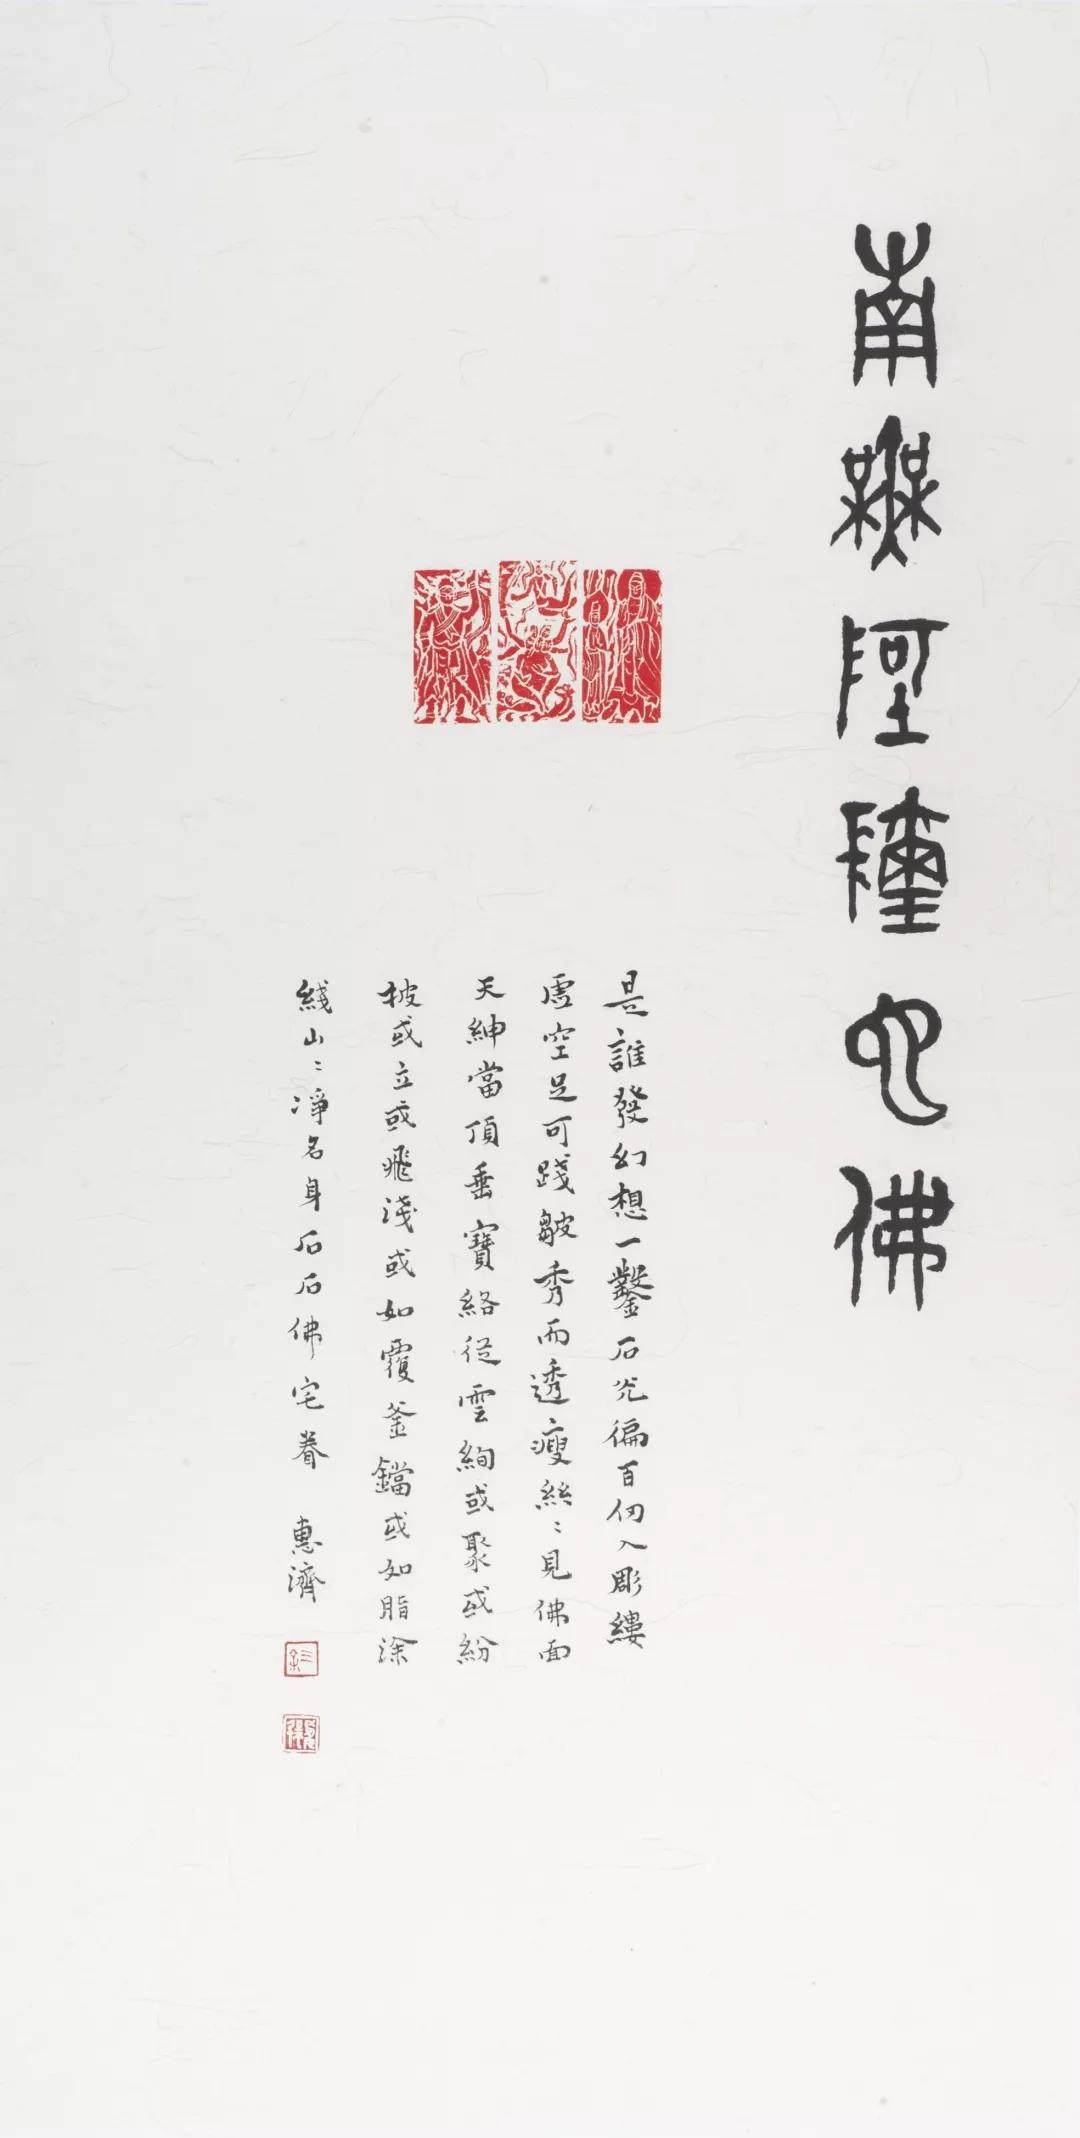 南無阿彌陀佛
是誰發幻想一鑿石光徧百仞入彫縷
虛空足可踐皺秀而透瘦絲〻見佛面
天紳當頂垂寶絡從雲絢或聚或紛
披或立或飛淺或如覆釜鐺或如脂涂
綫山〻凈名身石石佛宅眷 惠濟